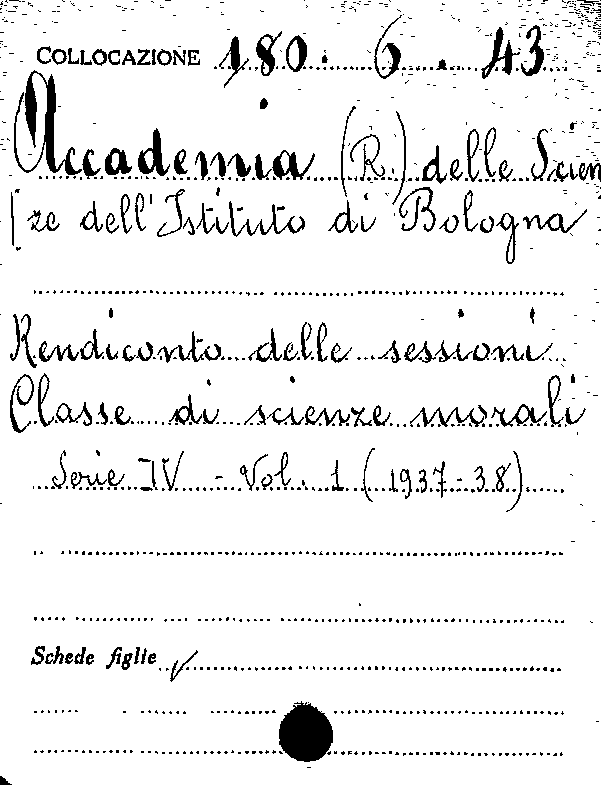 COLLOCAZIONE 180. 6. 43
Accademia (R.) delle Scien
[ze dell'Istituto di Bologna
Rendiconto delle sessioni
Classe di scienze morali
Serie IV - Vol. 1 (1937-38)
Schede figlie ✓